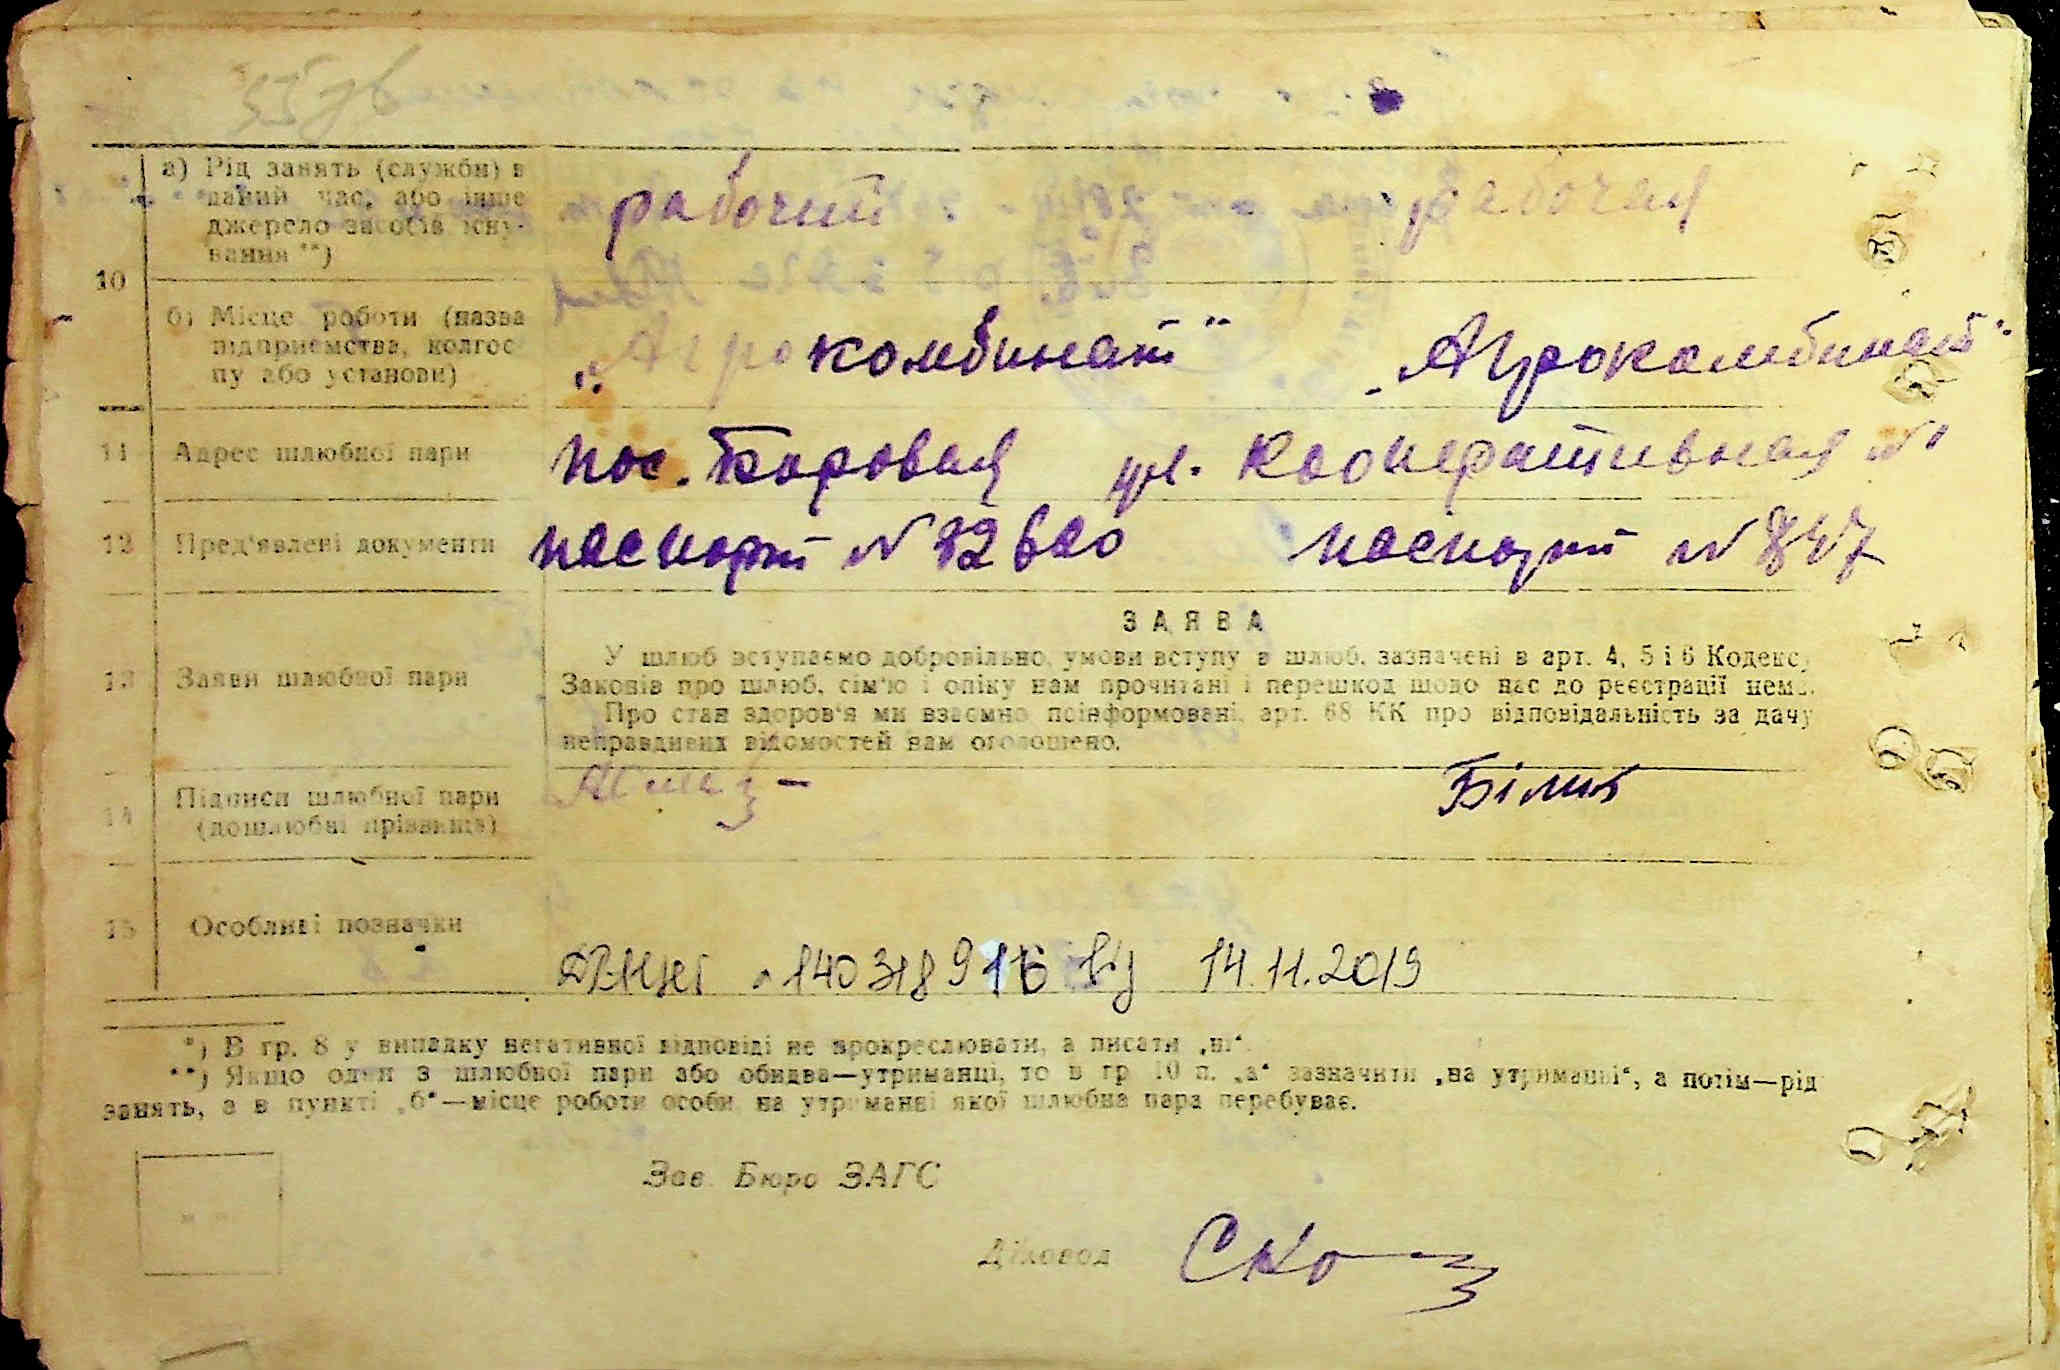 10
а) Рід занять (служби) в
даний час, або інше
джерело засобів існу-
вання **)
рабочий рабочая
б) Місце роботи (назва
підприємства, колгос-
пу або установи)
„Агрокомбинат" „Агрокомбинат"
11 Адрес шлюбної пари пос. Боровая ул. Кооперативная №1
12 Пред'явлені документи паспорт № паспорт № 847
ЗАЯВА
13 Заяви шлюбної пари
У шлюб вступаємо добровільно, умови вступу в шлюб, зазначені в арт. 4, 5 і 6 Кодексу
Законів про шлюб, сім'ю і опіку нам прочитані і перешкод щодо нас до реєстрації нема.
Про стан здоров'я ми взаємно поінформовані, арт. 68 КК про відповідальність за дачу
неправдивих відомостей нам оголошено.
14 Підписи шлюбної пари
(дошлюбні прізвища)
Білик
15 Особливі позначки
14031891 від 14.11.2019
*) В гр. 8 у випадку негативної відповіді не прокреслювати, а писати „ні".
**) Якщо один з шлюбної пари або обидва—утриманці, то в гр 10 п. „а" зазначити „на утриманні", а потім—рід
занять, а в пункті „б"—місце роботи особи, на утриманні якої шлюбна пара перебуває.
Зав. Бюро ЗАГС
Діловод